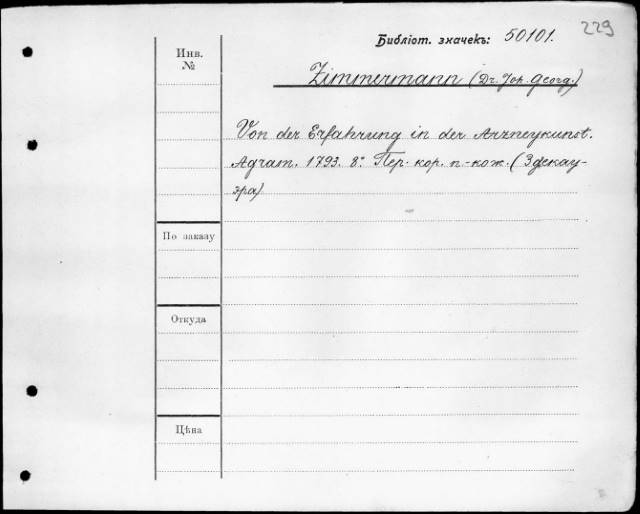 229
Библіот. значекъ: 50101.
Инв.
№
Zimmermann (Dr. Joh. Georg.)
Von der Erfahrung in der Arzneykunst.
Agram. 1793. 8°. Пер. кор. п-кож. (Здекау-
эра)
По заказу
Откуда
Цѣна